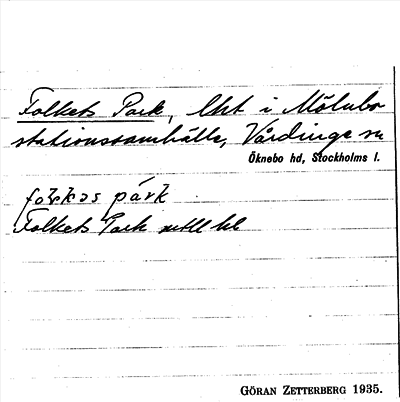 Folkets Park, lht i Mölnbo
stationssamhälle, Vårdinge sn
Öknebo hd, Stockholms l.
fo̤lkəs párk
Folkets Park
GÖRAN ZETTERBERG 1935.